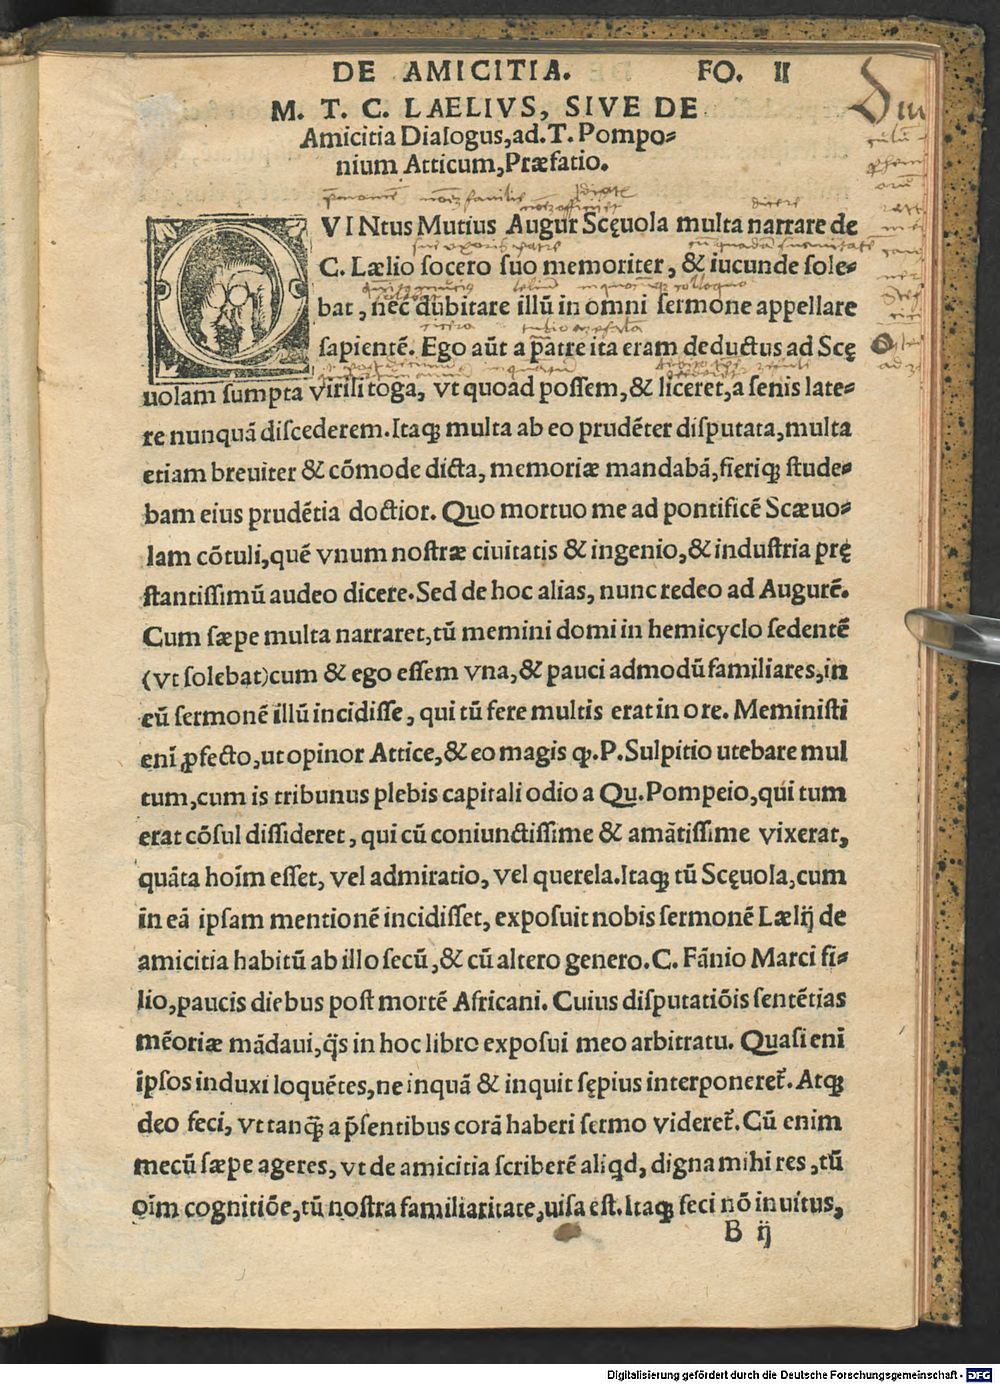 DE AMICITIA. FO. II
M. T. C. LAELIVS, SIVE DE
Amicitia Dialogus, ad. T. Pompo⸗
nium Atticum, Præfatio.
QVINtus Mutius Augur Scęuola multa narrare de
C. Lælio socero suo memoriter, & iucunde sole⸗
bat, nec dubitare illũ in omni sermone appellare
sapientẽ. Ego aũt a patre ita eram deductus ad Scę
uolam sumpta virili toga, vt quoad possem, & liceret, a senis late⸗
re nunquã discederem. Itaqꝫ multa ab eo prudẽter disputata, multa
etiam breuiter & cõmode dicta, memoriæ mandabã, fieriqꝫ stude⸗
bam eius prudẽtia doctior. Quo mortuo me ad pontificẽ Scæuo⸗
lam cõtuli, quẽ vnum nostræ ciuitatis & ingenio, & industria prę
stantissimũ audeo dicere. Sed de hoc alias, nunc redeo ad Augurẽ.
Cum sæpe multa narraret, tũ memini domi in hemicyclo sedentẽ
(vt solebat) cum & ego essem vna, & pauci admodũ familiares, in
eũ sermonẽ illũ incidisse, qui tũ fere multis erat in ore. Meministi
enĩ ꝓfecto, ut opinor Attice, & eo magis ꝙ. P. Sulpitio utebare mul
tum, cum is tribunus plebis capitali odio a Qu. Pompeio, qui tum
erat cõsul dissideret, qui cũ coniunctissime & amãtissime vixerat,
quãta hoĩm esset, vel admiratio, vel querela. Itaqꝫ tũ Scęuola, cum
in eã ipsam mentionẽ incidisset, exposuit nobis sermonẽ Lælij de
amicitia habitũ ab illo secũ, & cũ altero genero. C. Fãnio Marci fi⸗
lio, paucis diebus post mortẽ Africani. Cuius disputatiõis sentẽtias
mẽoriæ mãdaui, q̃s in hoc libro exposui meo arbitratu. Quasi enĩ
ipsos induxi loquẽtes, ne inquã & inquit sępius interponeret᷑. Atqꝫ
deo feci, vt tanq̃ꝫ a p̃sentibus corã haberi sermo videret᷑. Cũ enim
mecũ sæpe ageres, vt de amicitia scriberẽ aliqd, digna mihi res, tũ
oĩm cognitiõe, tũ nostra familiaritate, uisa est. Itaqꝫ feci nõ inuitus,
B ij
Digitalisierung gefördert durch die Deutsche Forschungsgemeinschaft - DFG